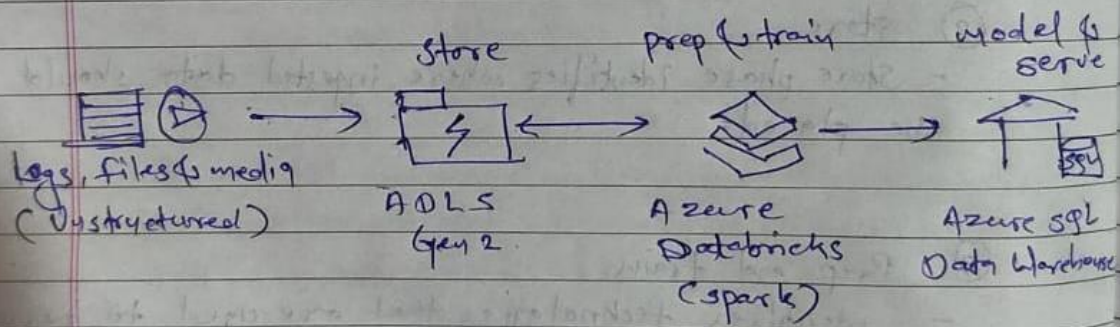 Store
prep & train
model &
serve
Logs, files & media
(Unstructured)
ADLS
Gen 2.
Azure
Databricks
(spark)
SQL
Azure SQL
Data Warehouse